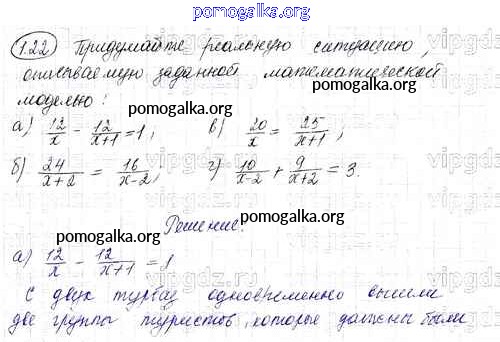 pomogalka.org
1.22 Придумайте реальную ситуацию,
описываемую заданной математической
моделью:
pomogalka.org
а) 12/x - 12/(x+1) = 1; в) 20/x = 25/(x+1);
pomogalka.org
б) 24/(x+2) = 16/(x-2); г) 10/(x-2) + 9/(x+2) = 3.
pomogalka.org
Решение:
pomogalka.org
а) 12/x - 12/(x+1) = 1
pomogalka.org
С двух турбаз одновременно вышли
две группы туристов, которые должны были